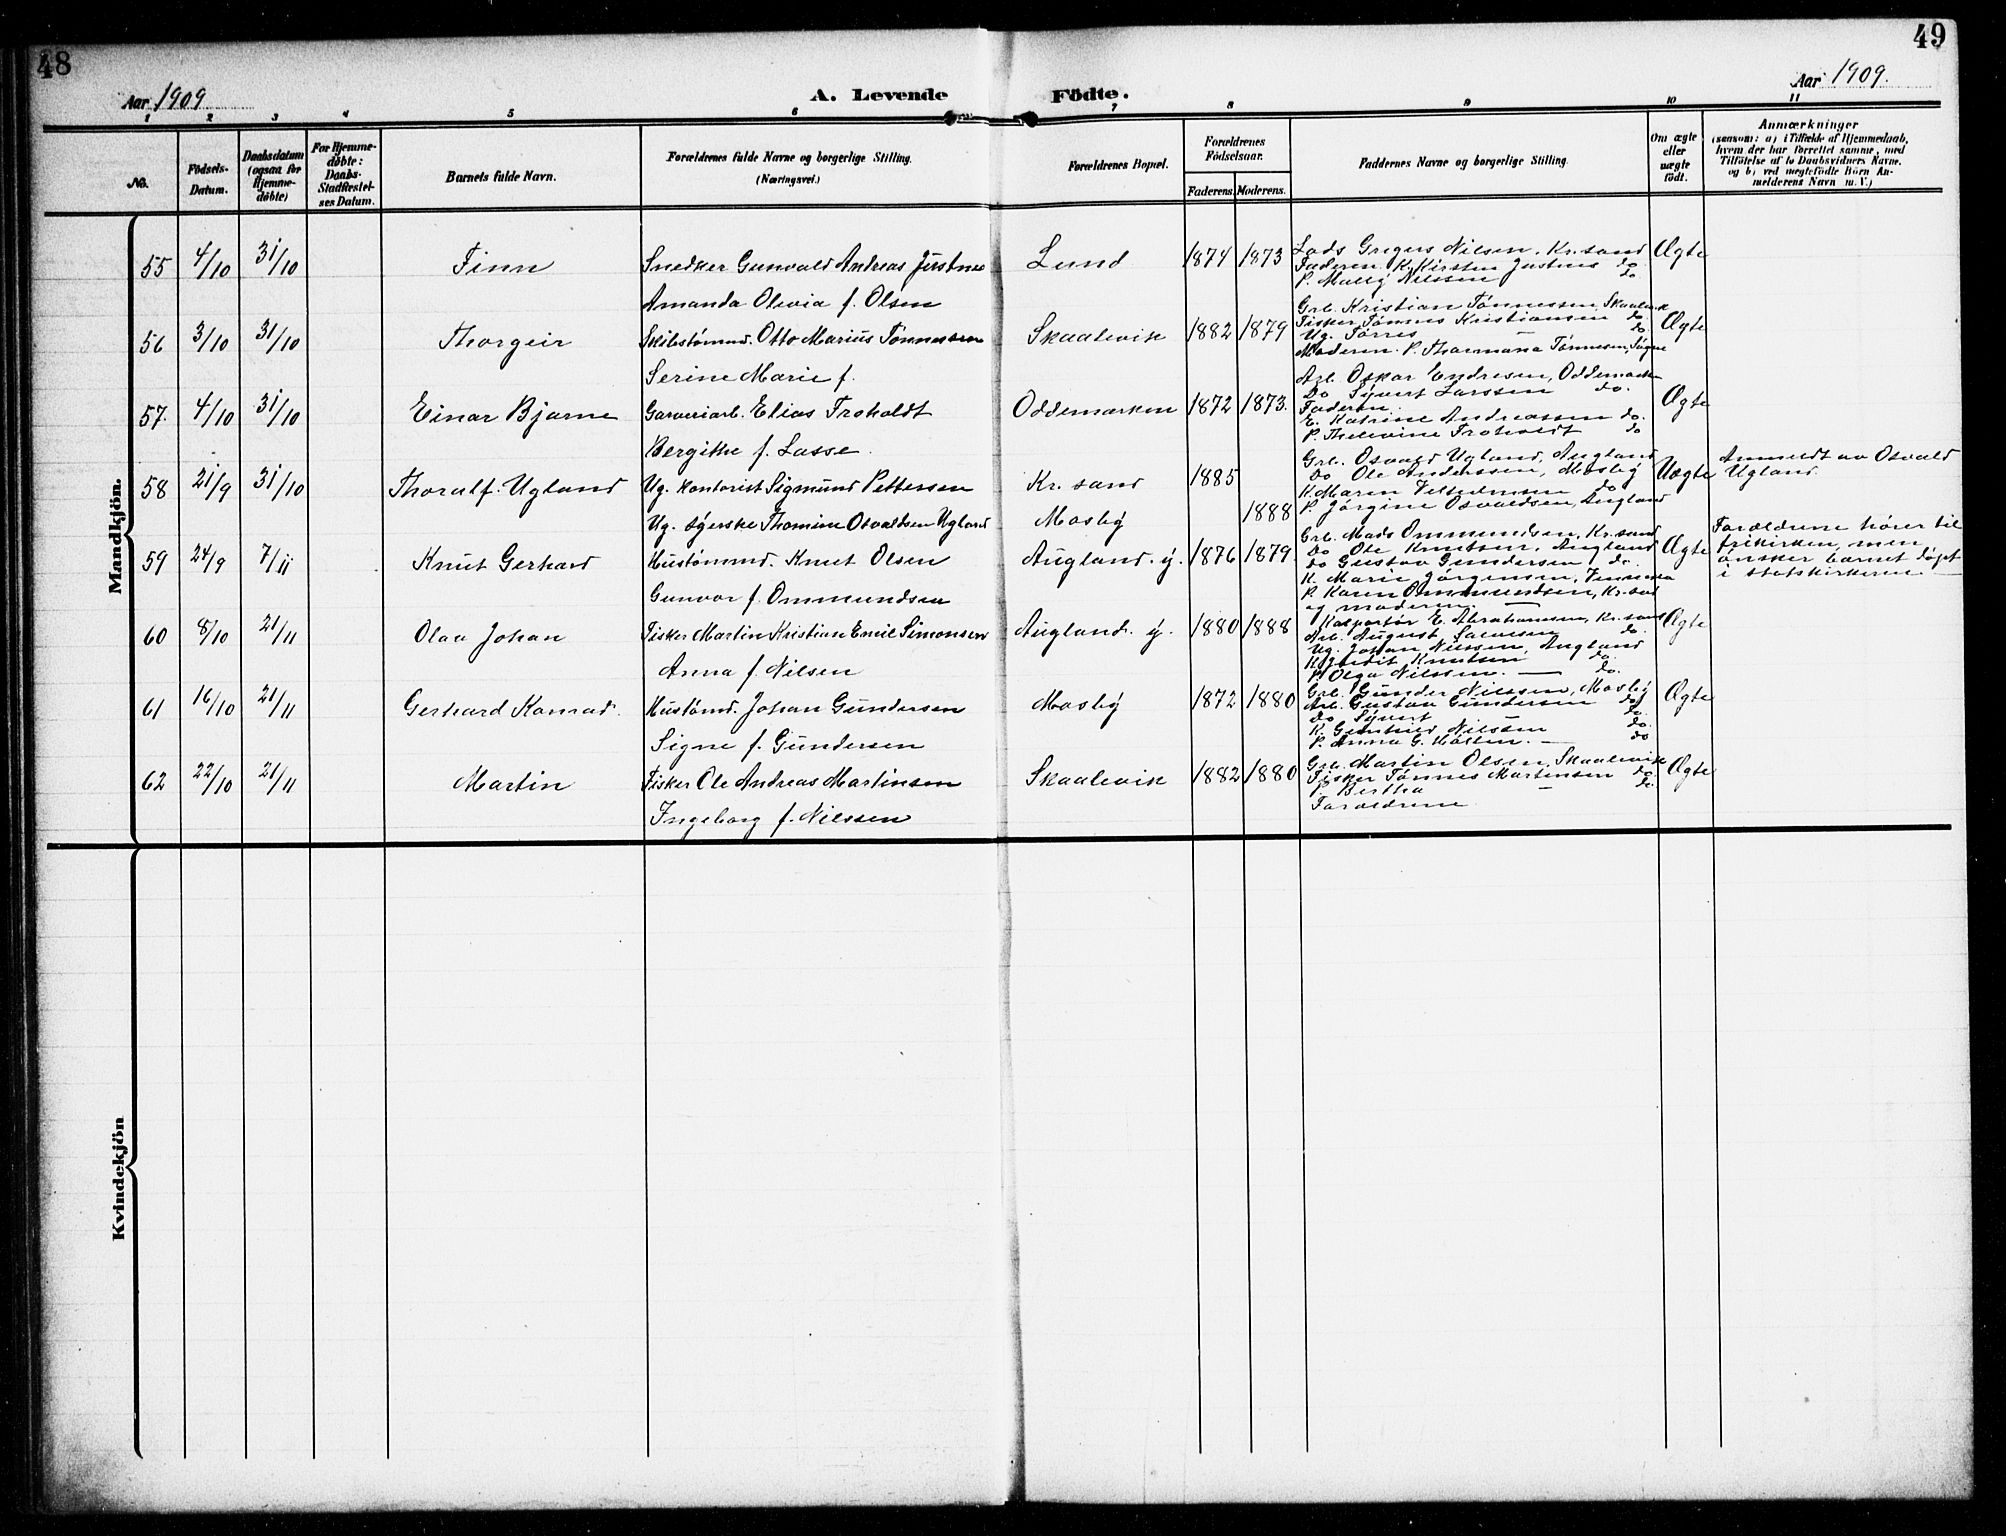 48
49
Aar 1909
A. Levende Födte.
Aar 1909.
1 2 3 4 5 6 7 8 9 10 11
No.
Födsels-Datum.
Daabsdatum (ogsaa for Hjemme-døbte)
For Hjemme-døbte: Daabs-Stadfæstel-ses Datum.
Barnets fulde Navn.
Forældrenes fulde Navne og borgerlige Stilling. (Næringsvei.)
Forældrenes Bopæl.
Forældrenes Födselsaar.
Faderens. Moderens.
Faddernes Navne og borgerlige Stilling.
Om ægte eller uægte födt.
Anmærkninger
(saasom: a) i Tilfælde af Hjemmedaab,
hvem der har forrettet samme, med
Tilföielse af to Daabsvidners Navne.
og b) ved uægtefödte Börn An-
melderens Navn m. V.)
Mandkjön.
55 4/10 31/10 Finn
Snedker Gunvald Andreas Justnes
Amanda Olivia f. Olsen
Lund 1874 1873
Lods Gregus Nilsen, Kr.sand
Faderen. K. Kirsten Justnes do
P. Mally Nilssen do
Ægte
56 3/10 31/10 Thorgeir
Skibstømmd. Otto Marius Tønnessen
Serine Marie f.
Skaalevik 1882 1879
Grb. Kristian Tønnessen, Skaalevik
Fisker Tønnes Kristiansen do
Ug. Torres do
Moderen. P. Thormana Tønnesen, Søgne
Ægte
57. 4/10 31/10 Einar Bjarne
Garveriarb. Elias Froholdt
Bergithe f. Lasse.
Oddemarken 1872 1873.
Arb. Oskar Endresen, Oddemarken
Do Syvert Larssen do.
Faderen.
E. Katrine Andreassen do.
P. Thelevine Froholdt do
Ægte
58 21/9 31/10 Thoralf. Ugland
Ug. kontorist Sigmund Pettersen
Ug. syerske Thomine Osvaldsen Ugland
Kr. sand 1885
Mosby 1888
Grb. Osvald Ugland, Augland
Do Ole Anderssen, Mosby
K. Maren Vilhelmsen do
P. Jørgine Osvaldsen, Augland
Uægte
Anmeldt av Osvald
Ugland.
59 24/9 7/11 Knut Gerhard
Hustømmd. Knut Olsen
Gunvor f. Ommundsen
Augland. y. 1876 1879.
Grb. Mads Ommundsen, Kr.sand
Do Ole Knutsen, Augland
Do Gustav Gundersen do.
K. Marie Jørgensen, Vennesla
P. Karen Ommundsen, Kr.sand
og moderen.
Ægte
Forældrene hører til
frikirken, men
ønsker barnet døpt
i statskirkene
60 8/10 21/11 Olaa Johan
Fisker Martin Kristian Emil Simonsen
Anna f. Nilsen
Augland. y. 1880 1888
Kolportør E. Abrahamsen, Kr. sand
Arb. August Salvesen do.
Ug. Johan Nilssen, Augland
K. Judit Knutsen do.
P. Olga Nilssen. do.
Ægte
61 16/10 21/11 Gerhard Konrad.
Hustømd. Johan Gundersen
Signe f. Gundersen
Mosby 1872 1880
Grb. Gunder Nilssen, Mosby
Arb. Gustav Gundersen do
Do Syvert do.
K. Gunhild Nilssen do
P. Anna G. do
Ægte
62 22/10 21/11 Martin
Fisker Ole Andreas Martinsen
Ingeborg f. Nilssen
Skaalevik 1882 1880
Grb. Martin Olsen, Skaalevik
Fisker Tønnes Martensen do
P. Bertha do
Forældrene
Ægte
Kvindekjön